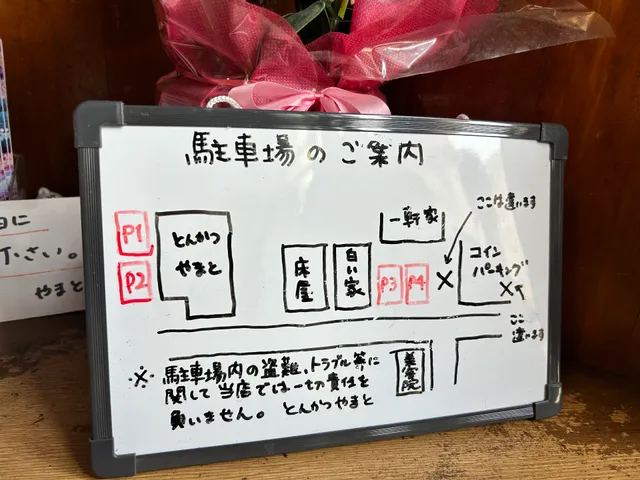 駐車場のご案内
ここは違います
一軒家
P1
とんかつ
やまと
P2
床屋
白い家
P3
P4
×
コイン
パーキング
×
ここ
違います
美容院
※駐車場内の盗難、トラブル等に
関して当店では一切責任を
負いません。とんかつやまと
日に
下さい。
やまと